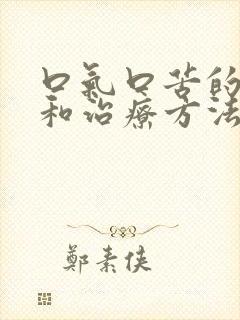 口氣口苦的
和治療方法
鄭素侠